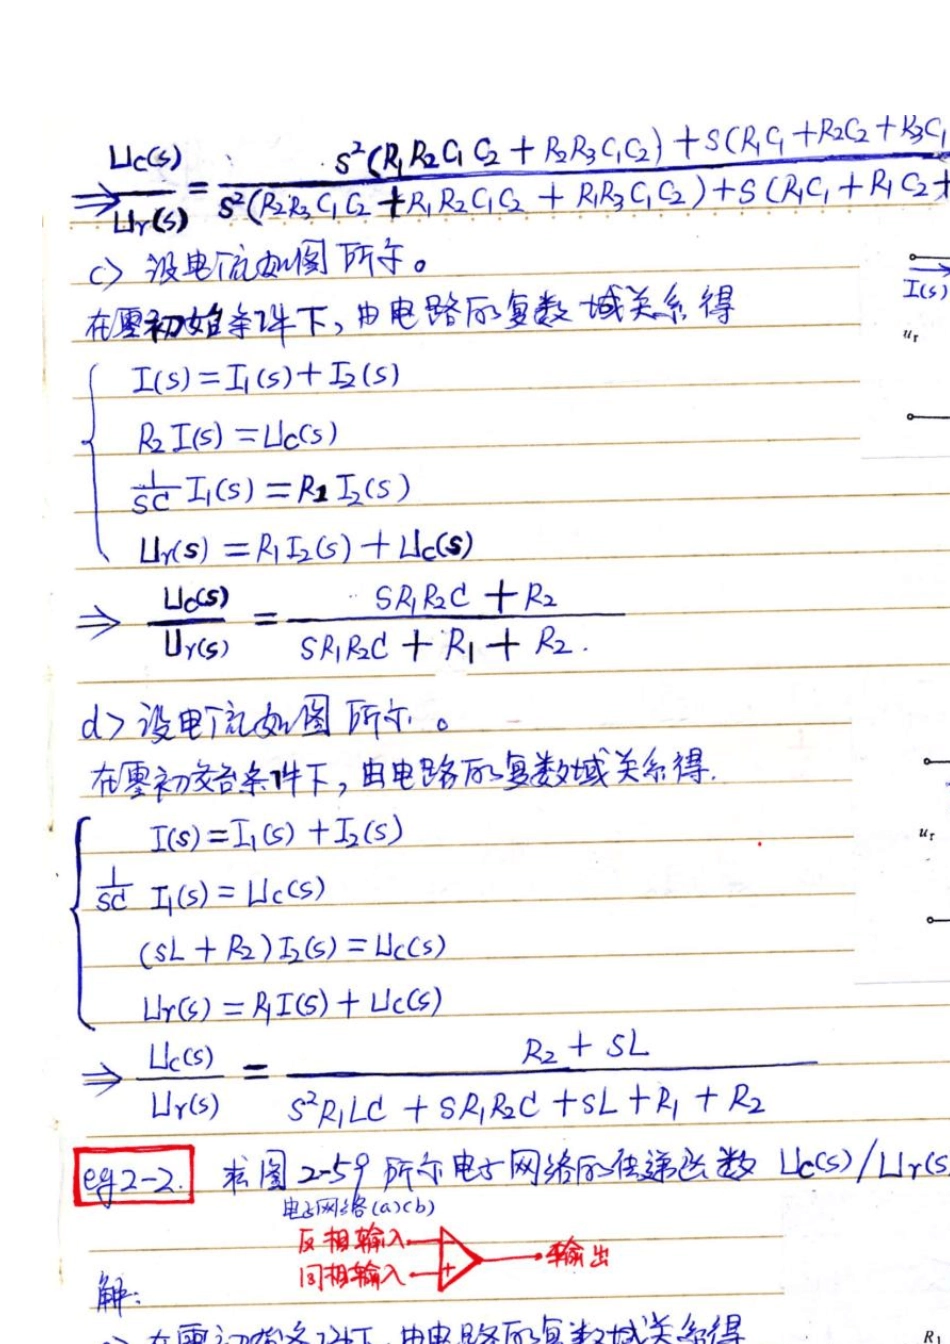 ⇒ Uc(s)/Ur(s) = [s²(R₁R₂C₁C₂ + R₂R₃C₁C₂) + s(R₁C₁ + R₂C₂ + R₃C₁] / [s²(R₂R₃C₁C₂ + R₁R₂C₁C₂ + R₁R₃C₁C₂) + s(R₁C₁ + R₁C₂ +]
c> 设电流如图所示。
I(s)
在零初始条件下,由电路的复数域关系得
uᵣ
I(s) = I₁(s) + I₂(s)
R₂I(s) = Uc(s)
1/sC I₁(s) = R₁I₂(s)
Ur(s) = R₁I₂(s) + Uc(s)
⇒ Uc(s)/Ur(s) = (sR₁R₂C + R₂)/(sR₁R₂C + R₁ + R₂).
d> 设电流如图所示。
在零初始条件下,由电路的复数域关系得.
I(s) = I₁(s) + I₂(s)
uᵣ
1/sC I₁(s) = Uc(s)
(sL + R₂)I₂(s) = Uc(s)
Ur(s) = R₁I(s) + Uc(s)
⇒ Uc(s)/Ur(s) = (R₂ + sL)/(s²R₁LC + sR₁R₂C + sL + R₁ + R₂)
eg2-2. 求图2-59所示电子网络的传递函数 Uc(s)/Ur(s
电子网络(a)(b)
反相输入
输出
同相输入
+
解:
在零初始条件下,由电路的复数域关系得
R₁